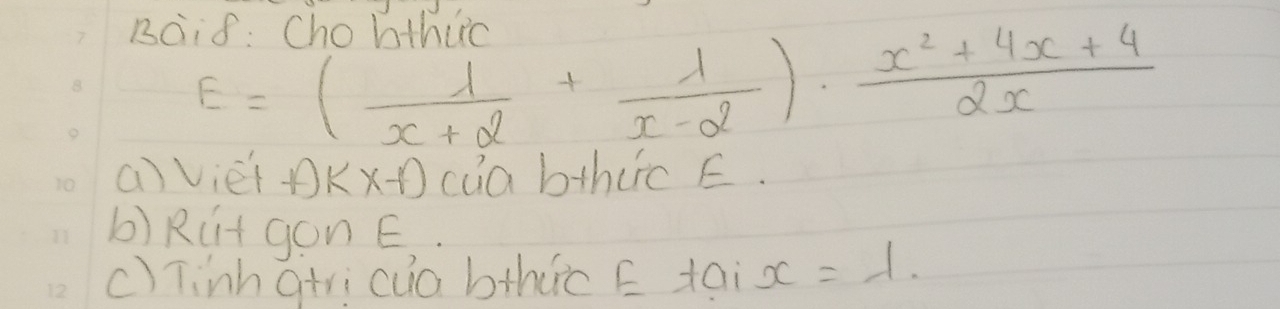 Bài 8: Cho bthức
E = ( 1/(x + 2) + 1/(x - 2) ) . (x² + 4x + 4)/(2x)
a) Viết ĐKXĐ của bthức E.
b) Rút gọn E.
c) Tính gtrị của bthức E tại x = 1.